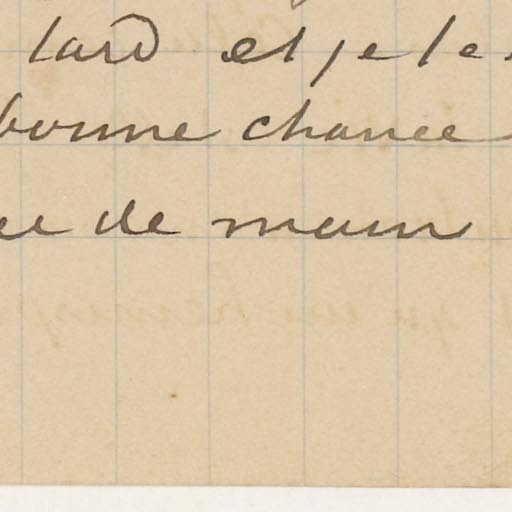 tard et je te
bonne chance
de main